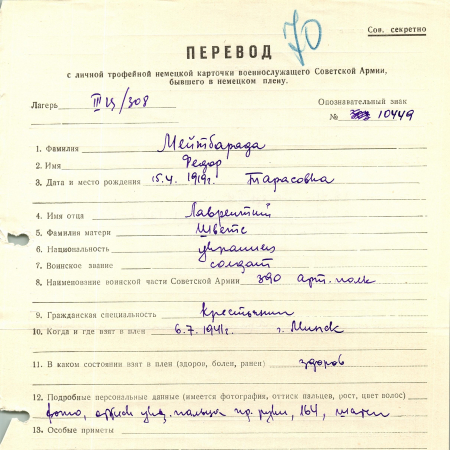 70
Сов. секретно
ПЕРЕВОД
с личной трофейной немецкой карточки военнослужащего Советской Армии,
бывшего в немецком плену.
Лагерь III Ц/308
Опознавательный знак
№ 10449
1. Фамилия Мейтбарада
2. Имя Федор
3. Дата и место рождения 15.4. 1919г. Тарасовка
4. Имя отца Лаврентий
5. Фамилия матери Швец
6. Национальность украинец
7. Воинское звание солдат
8. Наименование воинской части Советской Армии 390 арт. полк
9. Гражданская специальность Крестьянин
10. Когда и где взят в плен 6.7.1941г. г. Минск
11. В каком состоянии взят в плен (здоров, болен, ранен) здоров
12. Подробные персональные данные (имеется фотография, оттиск пальцев, рост, цвет волос)
фото, оттиск указ. пальца пр. руки, 164,
13. Особые приметы